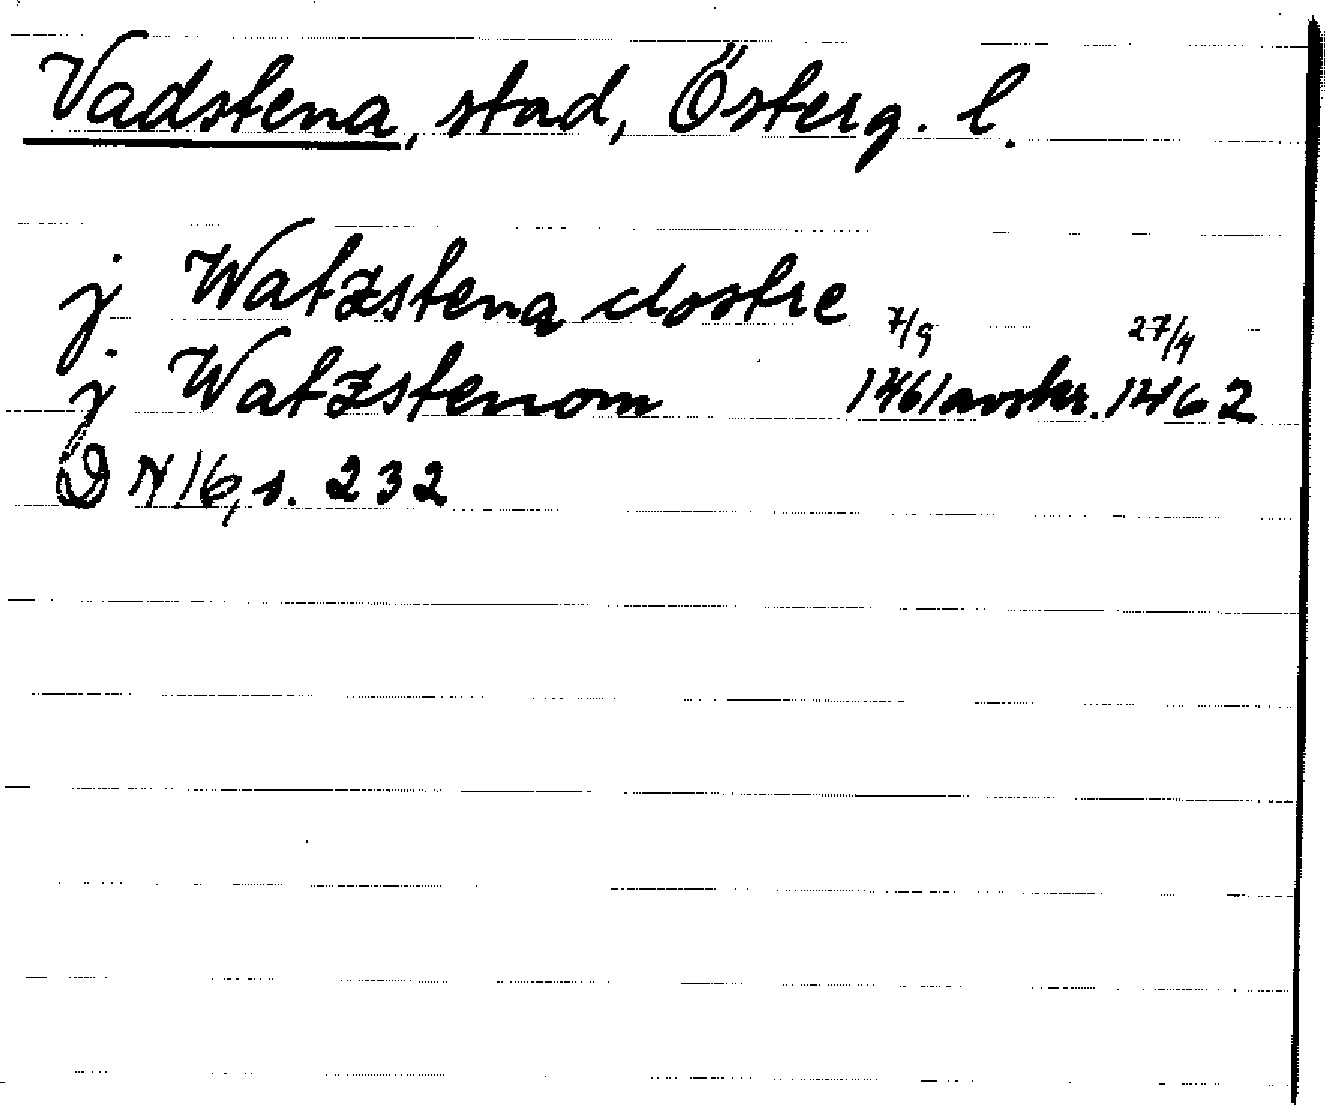 Vadstena, stad, Österg. l.
j Watzstena clostre
j Watzstenom 7/9 1461 avskr. 27/4 1462
DN 16, s. 232